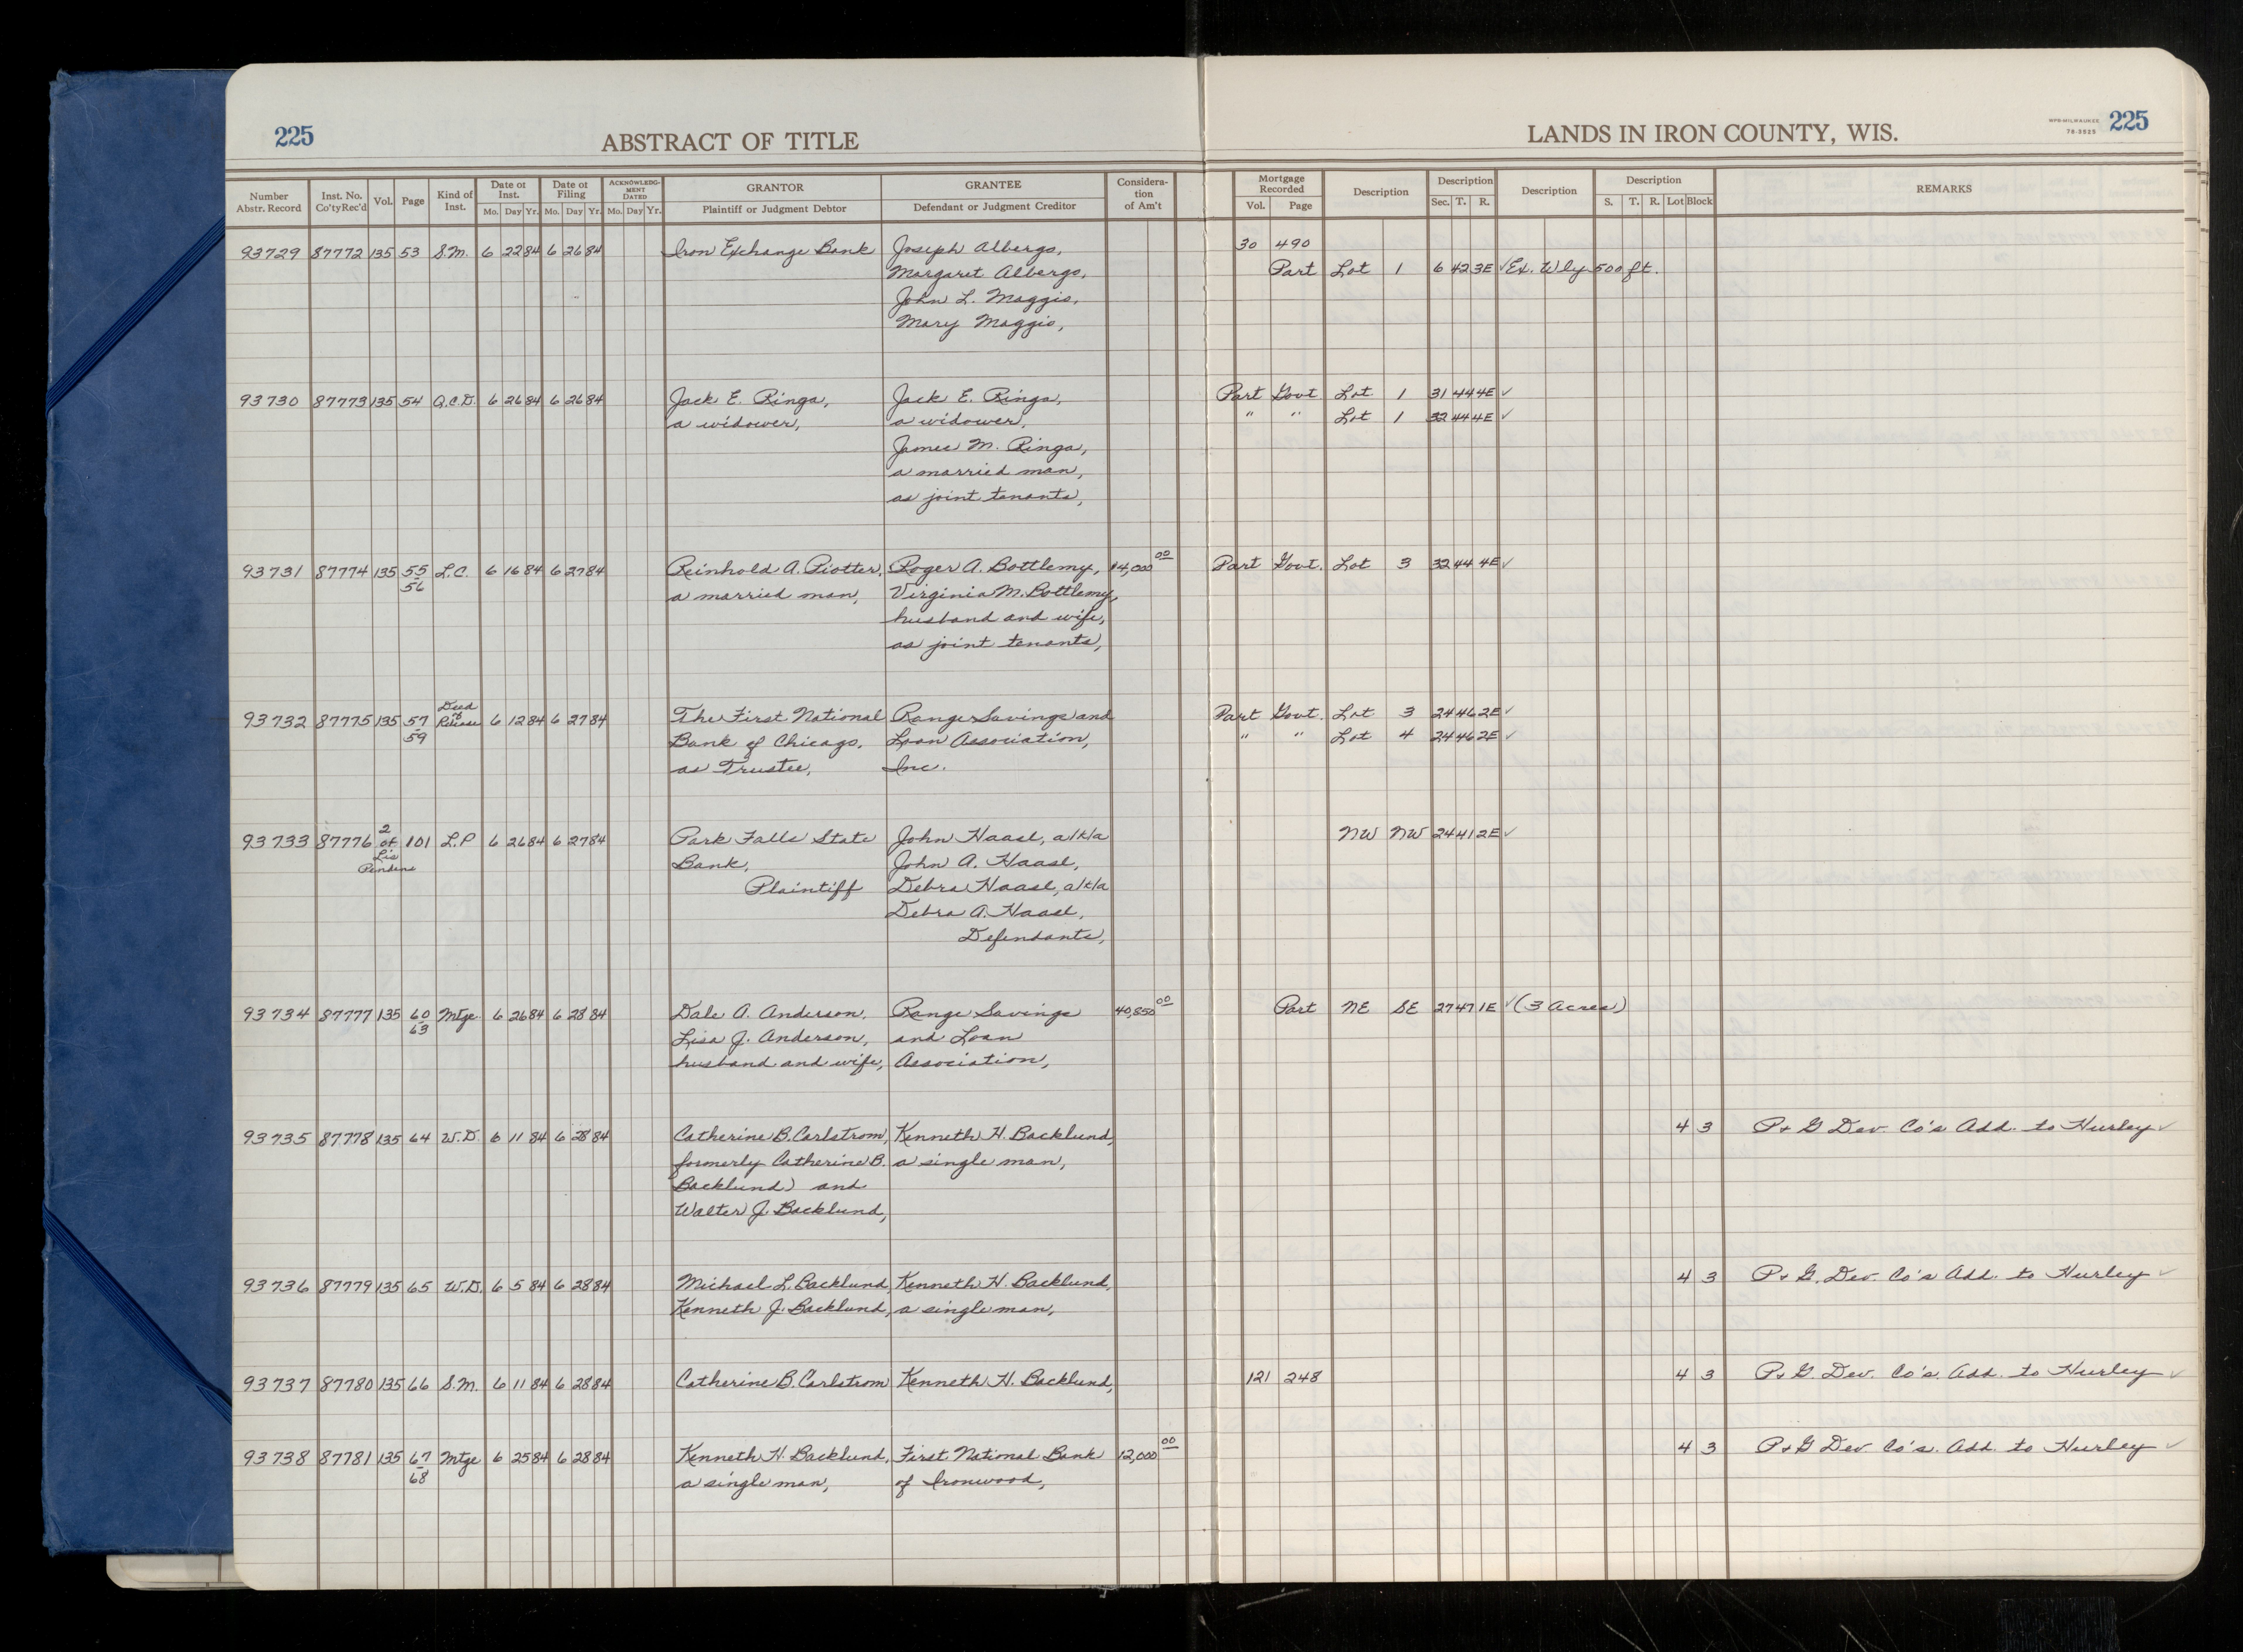 225
ABSTRACT OF TITLE
LANDS IN IRON COUNTY, WIS.
WPB-MILWAUKEE
78-3525
225
Number Abstr. Record | Inst. No. Co'ty Rec'd | Vol. | Page | Kind of Inst. | Date of Inst. Mo. Day Yr. | Date of Filing Mo. Day Yr. | ACKNOWLEDGMENT DATED Mo. Day Yr. | GRANTOR Plaintiff or Judgment Debtor | GRANTEE Defendant or Judgment Creditor | Consideration of Am't | Mortgage Recorded Vol. Page | Description | Description Sec. T. R. | Description | Description S. T. R. Lot Block | REMARKS
93729 87772 135 53 S.M. 6 22 84 6 26 84 Iron Exchange Bank Joseph Albergo, 30 490
Margaret Albergo, Part Lot 1 6 42 3E ✓ Ex. Wly 500 ft.
John L. Maggio,
Mary Maggio,
93730 87773 135 54 Q.C.D. 6 26 84 6 26 84 Jack E. Ringa, Jack E. Ringa, Part Govt Lot 1 31 44 4E ✓
a widower, a widower, " " Lot 1 32 44 4E ✓
James M. Ringa,
a married man,
as joint tenants,
93731 87774 135 55 L.C. 6 16 84 6 27 84 Reinhold A. Piotter, Roger A. Bottlemy, $4,000 00 Part Govt. Lot 3 32 44 4E ✓
56 a married man, Virginia M. Bottlemy,
husband and wife,
as joint tenants,
93732 87775 135 57 Deed of Release 6 12 84 6 27 84 The First National Range Savings and Part Govt. Lot 3 24 46 2E ✓
59 Bank of Chicago, Loan Association, " " Lot 4 24 46 2E ✓
as Trustee, Inc.
93733 87776 2 of Lis Pendens 101 L.P 6 26 84 6 27 84 Park Falls State John Haasl, a/k/a NW NW 24 41 2E ✓
Bank, John A. Haasl,
Plaintiff Debra Haasl, a/k/a
Debra A. Haasl,
Defendants,
93734 87777 135 60 Mtge. 6 26 84 6 28 84 Dale A. Anderson, Range Savings 40,850 00 Part NE SE 27 47 1E ✓ (3 Acres)
63 Lisa J. Anderson, and Loan
husband and wife, Association,
93735 87778 135 64 W.D. 6 11 84 6 28 84 Catherine B. Carlstrom, Kenneth H. Backlund, 4 3 P+G Dev. Co's Add. to Hurley ✓
formerly Catherine B. a single man,
Backlund) and
Walter J. Backlund,
93736 87779 135 65 W.D. 6 5 84 6 28 84 Michael L. Backlund, Kenneth H. Backlund, 4 3 P+G. Dev. Co's Add. to Hurley ✓
Kenneth J. Backlund, a single man,
93737 87780 135 66 S.M. 6 11 84 6 28 84 Catherine B. Carlstrom Kenneth H. Backlund, 121 248 4 3 P+G. Dev. Co's. Add. to Hurley ✓
93738 87781 135 67 Mtge 6 25 84 6 28 84 Kenneth H. Backlund, First National Bank 12,000 00 4 3 P+G Dev Co's. Add. to Hurley ✓
68 a single man, of Ironwood,